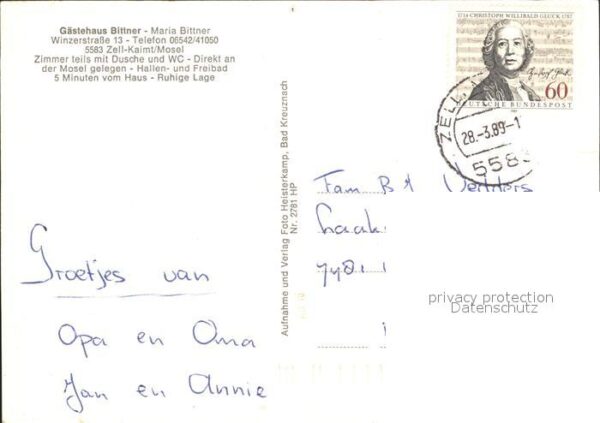 Gästehaus Bittner - Maria Bittner
Winzerstraße 13 - Telefon 06542/41050
5583 Zell-Kaimt/Mosel
Zimmer teils mit Dusche und WC - Direkt an
der Mosel gelegen - Hallen- und Freibad
5 Minuten vom Haus - Ruhige Lage
1714 CHRISTOPH WILLIBALD GLUCK 1787
60
DEUTSCHE BUNDESPOST
ZELL
28.-3.89-1
5583
Aufnahme und Verlag Foto Heisterkamp, Bad Kreuznach
Nr. 2781 HP
Fam
Groetjes van
Opa en Oma
Jan en Annie
privacy protection
Datenschutz